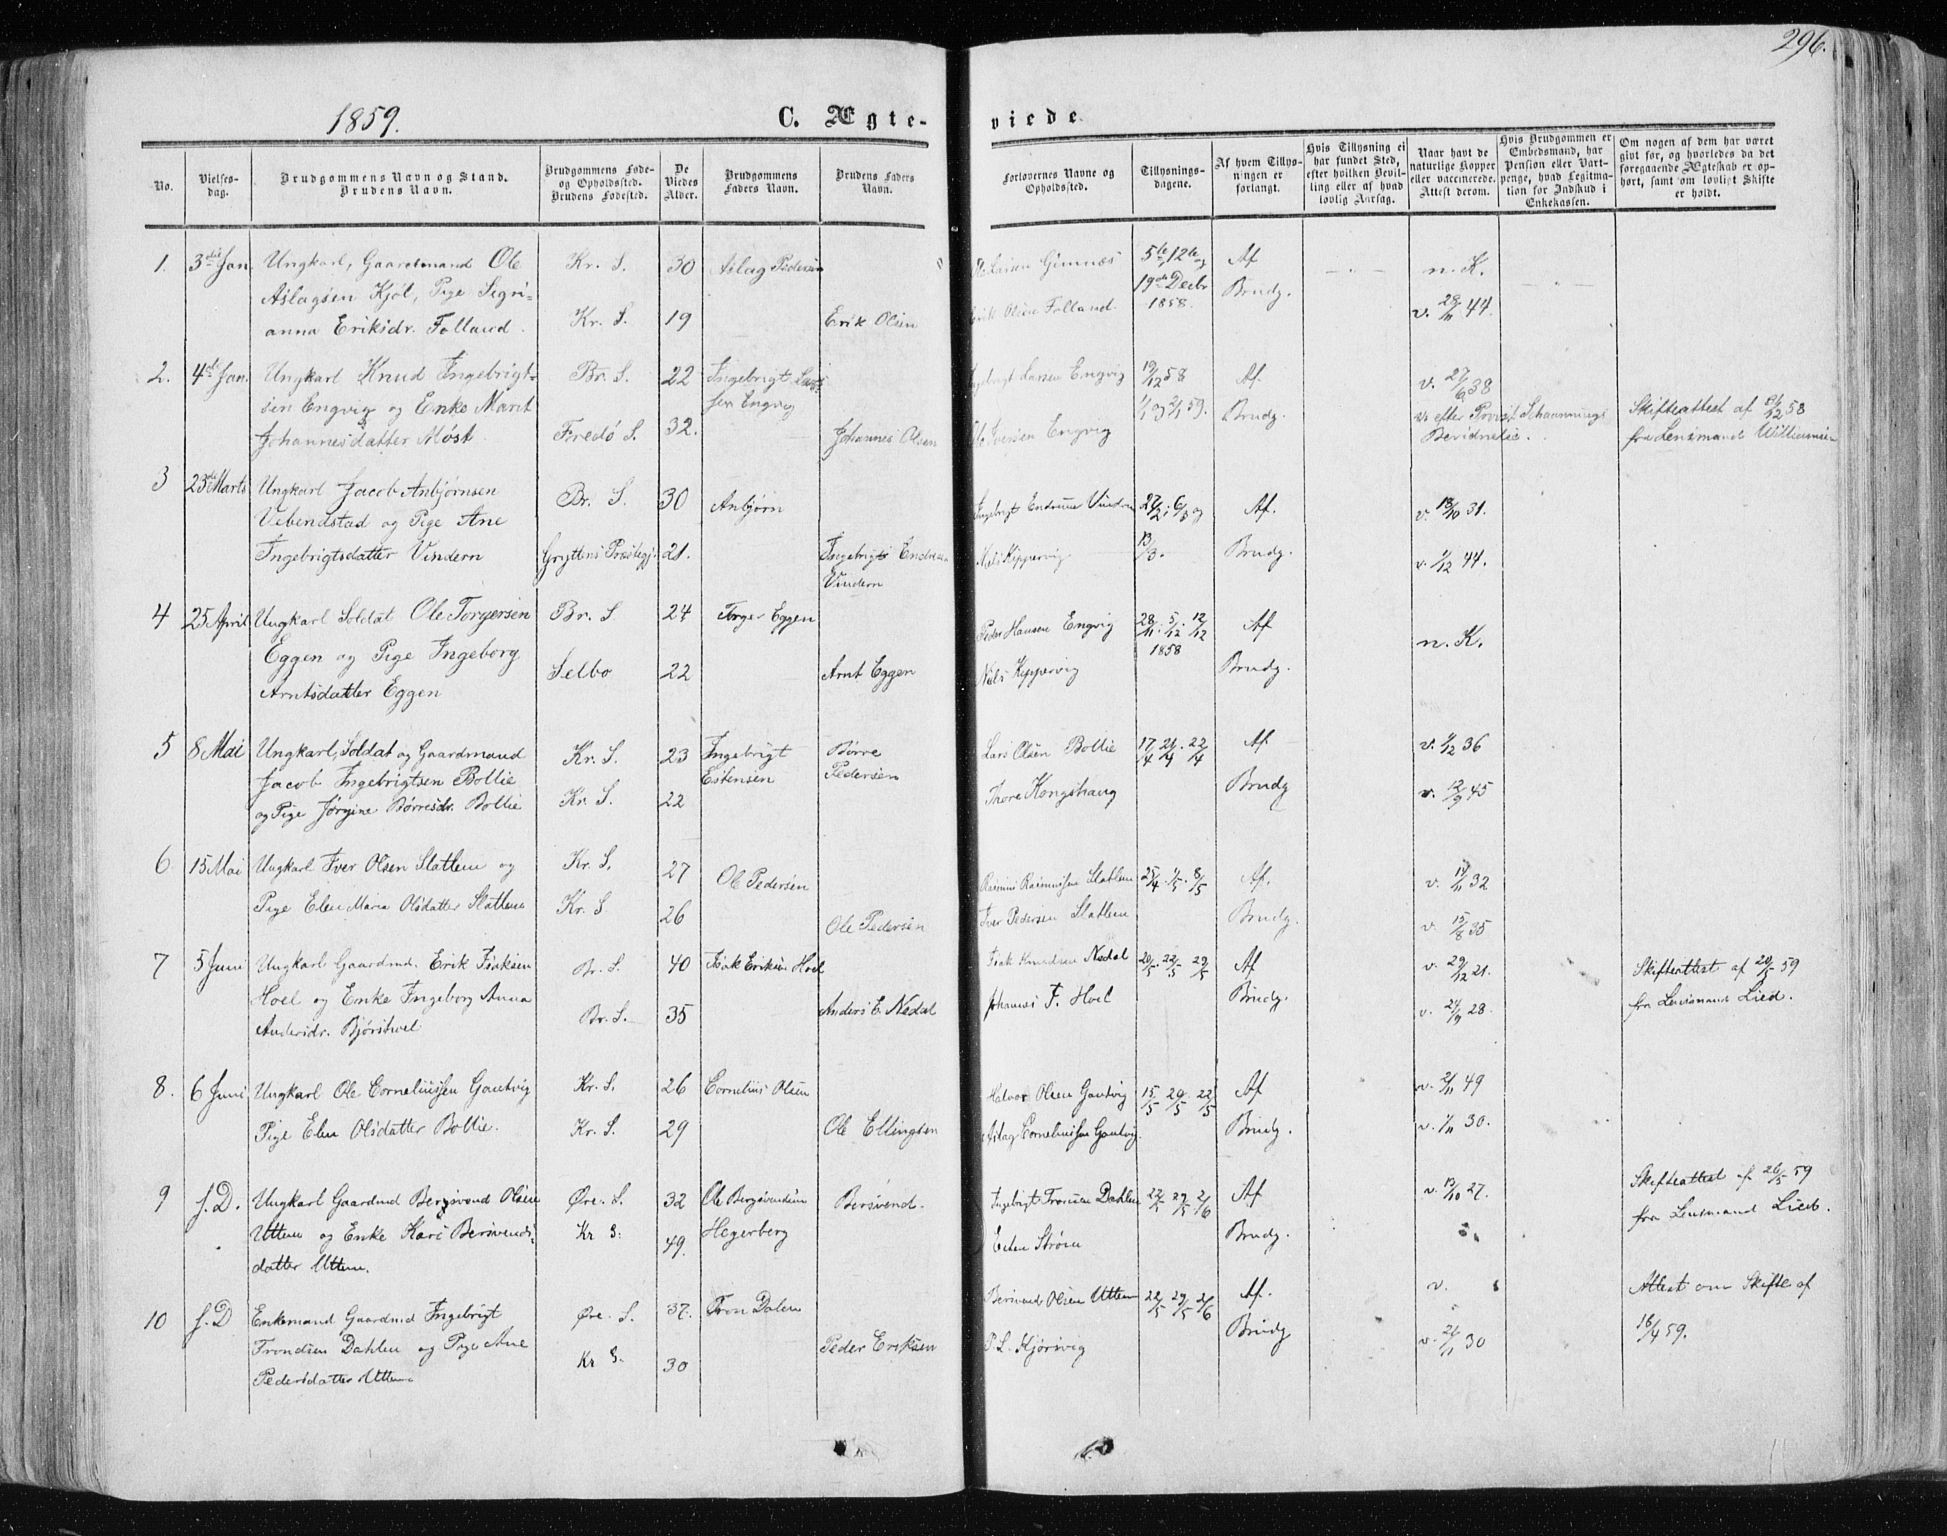 296.
1859.
C. Ægteviede
No.
Vielsesdag.
Brudgommens Navn og Stand.
Brudens Navn.
Brudgommens Føde- og Opholdssted.
Brudens Fødested.
De Viedes Alder.
Brudgommens Faders Navn.
Brudens Faders Navn.
Forlovernes Navne og Opholdssted.
Tillysningsdagene.
Af hvem Tillysningen er forlangt.
Hvis Tillysning ei har fundet Sted, efter hvilken Bevilling eller af hvad lovlig Aarsag.
Naar havt de naturlige Kopper eller vaccinerede. Attest derom.
Hvis Brudgommen er Embedsmand, har Pension eller Vartpenge, hvad Legitimation for Indskud i Enkekassen.
Om nogen af dem har været givt før, og hvorledes da det foregaaende Ægteskab er ophørt, samt om lovligt Skifte er holdt.
1. 3die Jan. Ungkarl, Gaardmand Ole Kr. S. 30 Aslag Pedersen Larsen Gimnæs 5te 12te og Af n. K.
Aslagsen Kjøl, Pige Segri- 19de Decbr Brudg.
anna Eriksdr. Folland. Kr. S. 19 Erik Olsen Erik Olsen Folland. 1858. v. 28/11 44.
2. 4de Jan. Ungkarl Knud Ingebrigt- Br. S. 22 Ingebrigt Lars- Ingebrigt Larsen Engvig 19/12 58 Af. v. 27/6 38
sen Engvig og Enke Marit sen Engvig 2/1 59. Brudg. v. efter Provst Schannings Skifteattest af 58
Johannesdatter Møst Fredø S. 32. Johannes Olsen Ole Iversen Engvig fra Lensmand
3 23de Marts Ungkarl Jacob Anbjørnsen Br. S. 30 Anbjørn Ingebrigt Endresen Vindern 27/2, 6/3 og Af. v. 13/10 31.
Vebenstad og Pige Ane 13/3. Brudg.
Ingebrigtsdatter Vindern Gryttens Præstegj. 21. Ingebrigt Endresen Niels Kippervig v. 1/12 44.
Vindern
4 25 April Ungkarl Soldat Ole Torgersen Br. S 24 Torger Eggen Peder Hansen Engvig 28/11. 5/12. 12/12 Af n. K.
Eggen og Pige Ingeborg Selbo 22 Arnt Eggen Niels Kippervig 1858 Brudg.
Arntsdatter Eggen
5 8 Mai Ungkarl, Soldat og Gaardmand Kr. S. 23 Ingebrigt Børre Lars Olsen Bollie 17/4 21/4. 22/4 Af v. 2/12 36
Jacob Ingebrigtsen Bollie Estensen Pedersen
og Pige Jørgine Børresdr. Bollie Kr. S. 22 Thore Kongshaug Brudg v. 12/9 45
6 15 Mai Ungkarl Iver Olsen Slatlem og Kr. S. 27 Ole Pedersen Rasmus Rasmussen Slatlem 25/4. 1/5. 8/5 Af. v. 32
Pige Elen Maria Olsdatter Slatlem Kr. S 26 Ole Pedersen Iver Pedersen Slatlem Brudg. v. 15/8 35
7 5 Juni Ungkarl Gaardmd. Erik Isaksen Br. S. 40 Isak Eriksen Hoel Isak Knudsen Nedal 20/5. 22/5 29/5 Af v. 29/12 21. Skifteattest af 20/5 59
Hoel og Enke Ingeborg Anna Br. S. 35 Anders E. Nedal Johannes F. Hoel Brudg. v. 28. fra Lensmand Lied.
Andersdr. Bjørshoel
8. 6 Juni Ungkarl Ole Corneliussen Gautvig Kr. S. 26 Cornelius Olsen Halvor Olsen Gautvig 15/5 20/5. 22/5 Af v. 2/11 49
Pige Elen Olsdatter Bollie. Kr. S. 29 Ole Ellingsen Aslag Corneliussen Gautvig. Brudg. v. 1/11 30.
9 s. D. Ungkarl Gaardmd Bersvend Olsen Øre. S. 32 Ole Bergsvendsen Bersvend. Ingebrigt Tronsen Dahlen 22/5 29/5 2/6 Af v. 13/10 27. Skifteattest af 26/5 59
Uttem og Enke Kari Bersvends- Kr S. 49. Hegerberg Esten Strøm Brudg. fra Lensmand Lied.
datter Uttem.
10 s. D Enkemand Gaardmd Ingebrigt Øre. S. 37. Tron Dalen Bersvend Olsen Uttem 22/5 29/5 2/6 Af. v. Attest om Skifte af
Trondsen Dahlen og Pige Ane Kr S. 30 Peder Eriksen P. L. Hjørsvig Brudg v. 21/11 30 16/4 59.
Pedersdatter Uttem